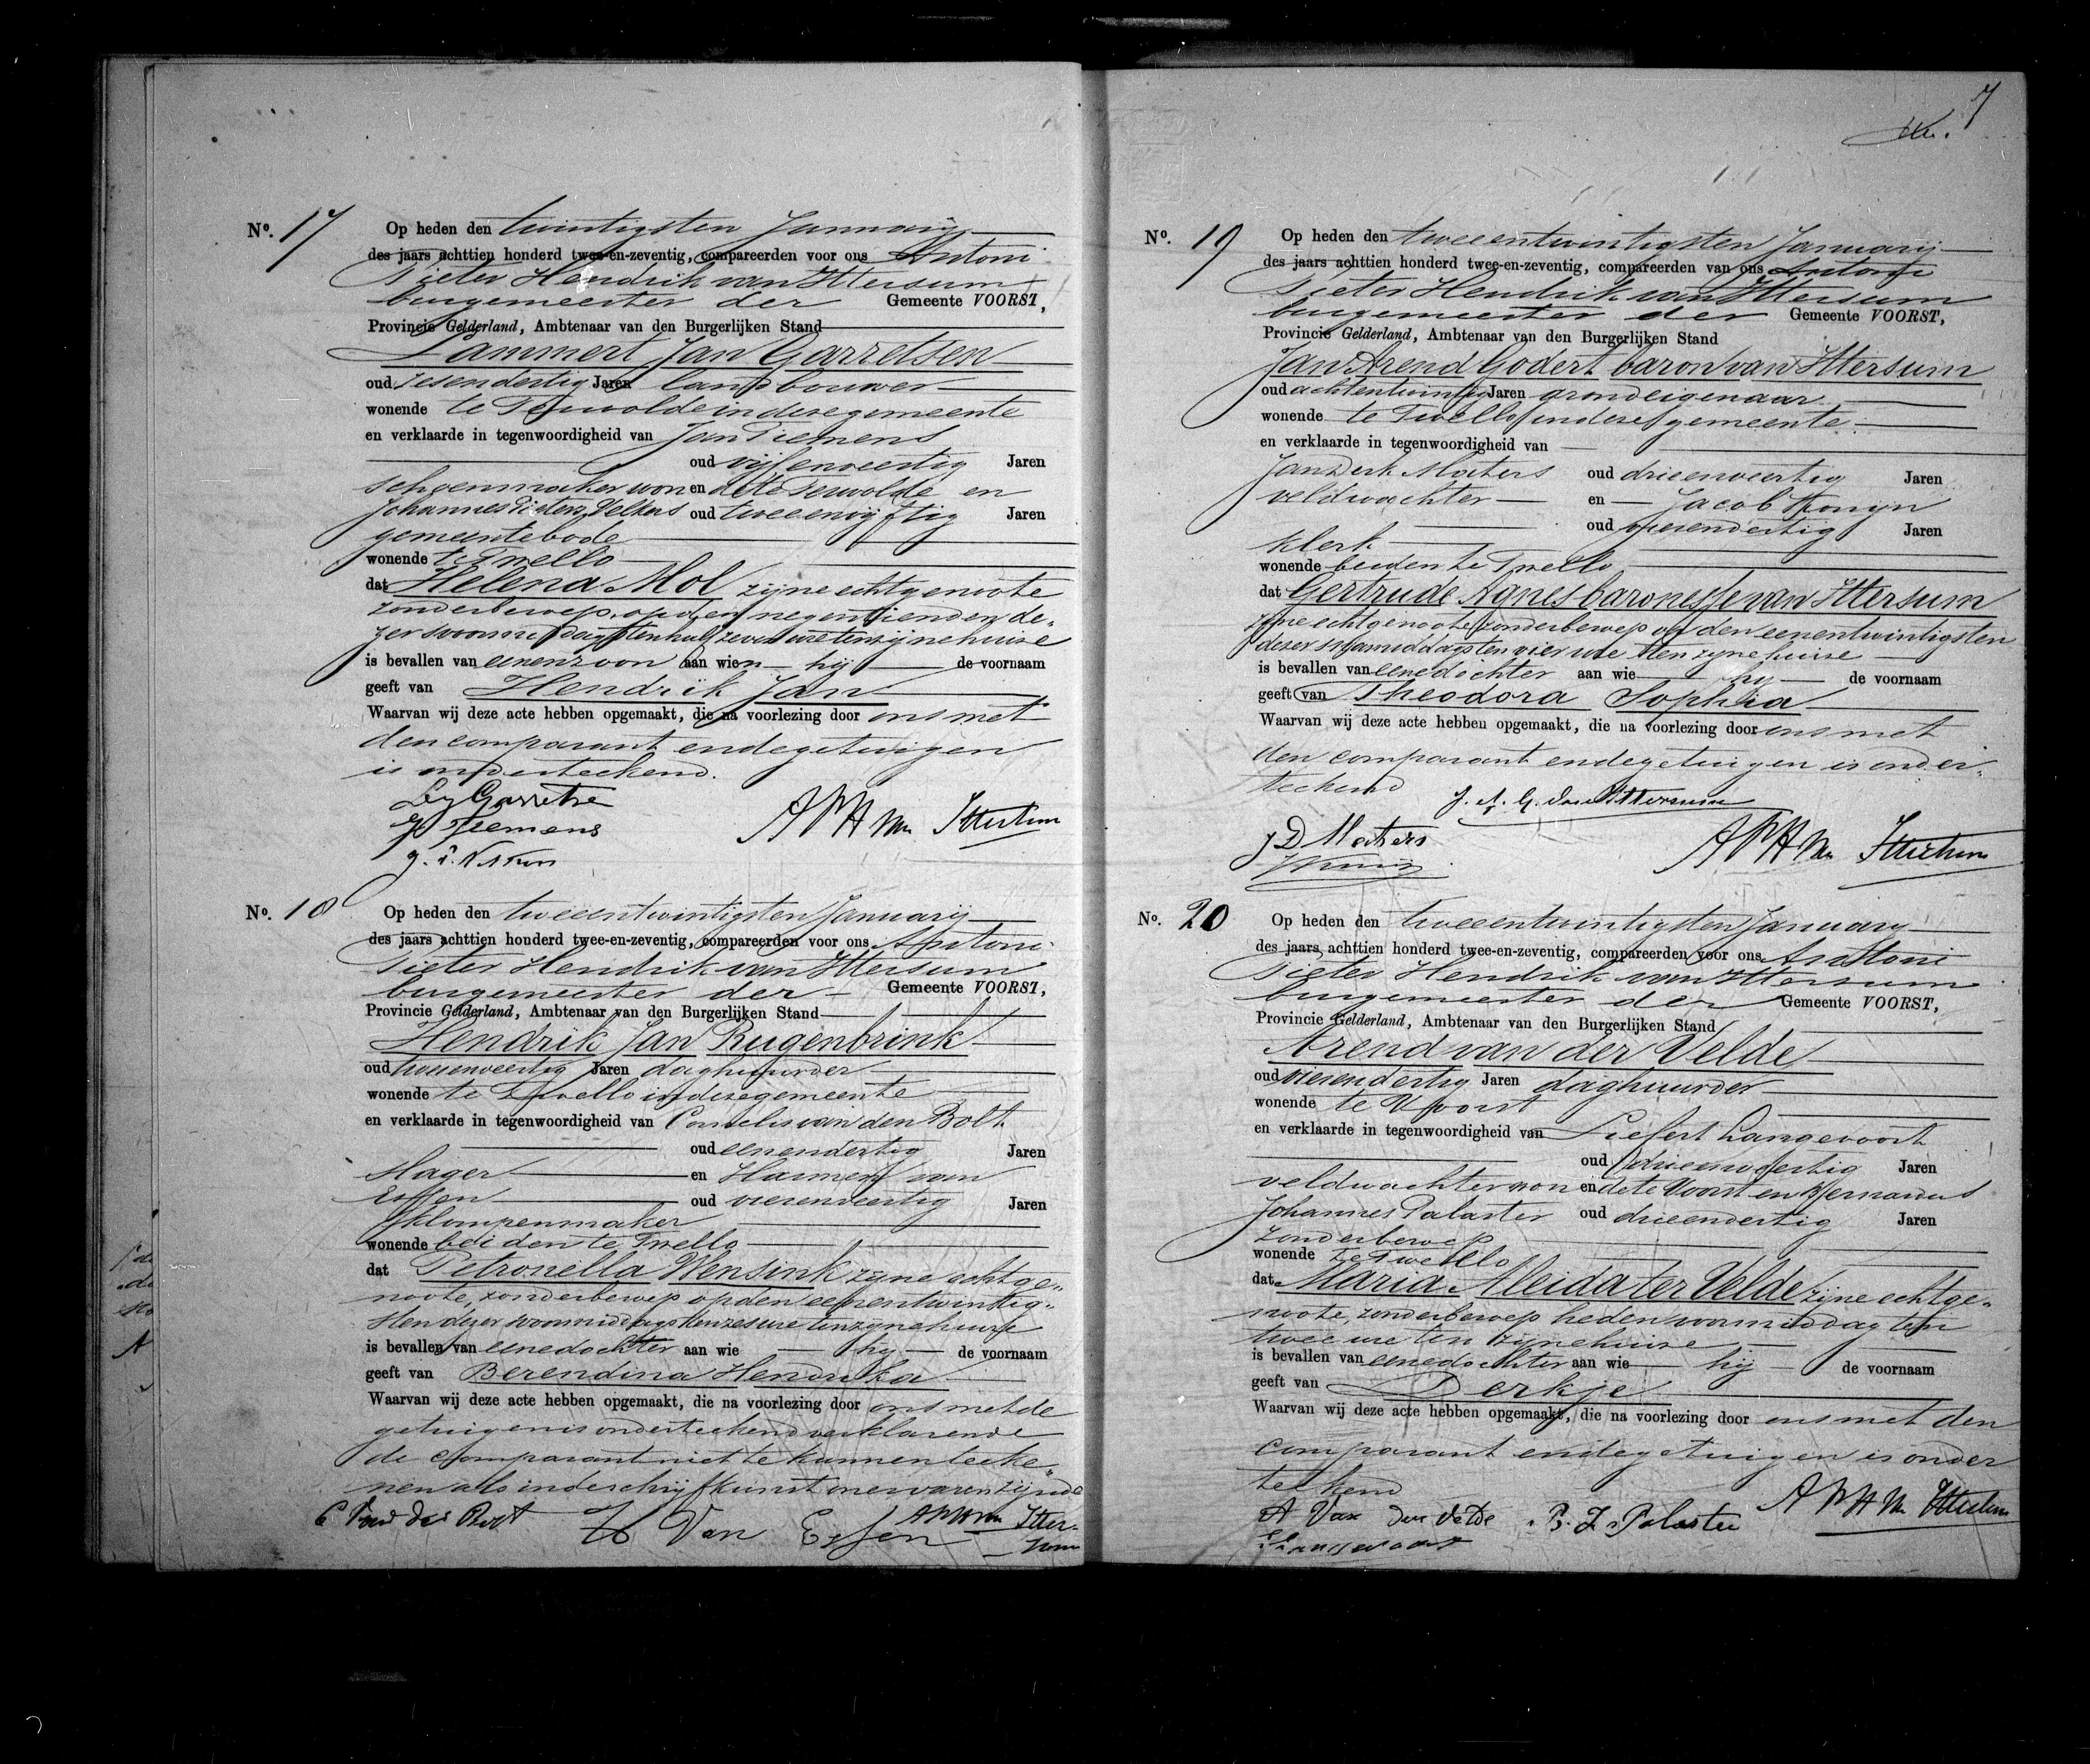 No. 17 Op heden den twintigsten Januarij
des jaars achttien honderd twee-en-zeventig, compareerden voor ons Antoni
Pieter Hendrik van Ittersum
burgemeester der Gemeente VOORST,
Provincie Gelderland, Ambtenaar van den Burgerlijken Stand
Lammert Jan Garretsen
oud zesendertig Jaren landbouwer
wonende te Terwolde in deze gemeente
en verklaarde in tegenwoordigheid van Jan Tiemens
oud vijfenveertig Jaren
schoenmaker wonende te Terwolde en
Johannes Pieter Velters oud tweeenvijftig Jaren
gemeentebode
wonende te Twello
dat Helena Mol zijne echtgenoote
zonder beroep, op den negentienden de-
zer voormiddags ten half zeven ure ten zijnen huize
is bevallen van eenen zoon aan wien hij de voornaam
geeft van Hendrik Jan
Waarvan wij deze acte hebben opgemaakt, die na voorlezing door ons met
den comparant en de getuigen
is onderteekend.
L J Garretse
J Tiemens
APH van Ittersum
No. 18 Op heden den tweeentwintigsten Januarij
des jaars achttien honderd twee-en-zeventig, compareerden voor ons Antoni
Pieter Hendrik van Ittersum
burgemeester der Gemeente VOORST,
Provincie Gelderland, Ambtenaar van den Burgerlijken Stand
Hendrik Jan Rugenbrink
oud tweeenveertig Jaren daghuurder
wonende te Twello in deze gemeente
en verklaarde in tegenwoordigheid van Cornelis van den Bolt
oud eenendertig Jaren
slager en Harmen van
Essen oud vierenveertig Jaren
klompenmaker
wonende beiden te Twello
dat Petronella Wensink zijne echtge-
noote, zonder beroep op den eenentwintig-
sten dezer voormiddags ten zes ure ten zijne huize
is bevallen van eene dochter aan wie hij de voornaam
geeft van Berendina Hendrika
Waarvan wij deze acte hebben opgemaakt, die na voorlezing door ons met de
getuigen is onderteekend verklarende
de comparant niet te kunnen teeke-
nen als in de schrijfkunst onervaren zijnde
C Van den Bolt H Van Essen APH van Itter-
sum
7
No. 19 Op heden den tweeentwintigsten Januarij
des jaars achttien honderd twee-en-zeventig, compareerden van ons Antoni
Pieter Hendrik van Ittersum
burgemeester der Gemeente VOORST,
Provincie Gelderland, Ambtenaar van den Burgerlijken Stand
Jan Arend Godert baron van Ittersum
oud achtentwintig Jaren grondeigenaar
wonende te Twello in deze gemeente
en verklaarde in tegenwoordigheid van
Jan Derk Maters oud drieenveertig Jaren
veldwachter en Jacob Konijn
oud vierendertig Jaren
klerk
wonende beiden te Twello
dat Gertrude Agnes baronesse van Ittersum
zijne echtgenoote zonder beroep op den eenentwintigsten
dezer namiddags ten vier ure ten zijne huize
is bevallen van eene dochter aan wie hij de voornaam
geeft van Theodora Sophia
Waarvan wij deze acte hebben opgemaakt, die na voorlezing door ons met
den comparant en de getuigen is onder-
teekend J. A. G. van Ittersum
J D Maters
J Konijn
APH van Ittersum
No. 20 Op heden den tweeentwintigsten Januarij
des jaars achttien honderd twee-en-zeventig, compareerden voor ons Antoni
Pieter Hendrik van Ittersum
burgemeester der Gemeente VOORST,
Provincie Gelderland, Ambtenaar van den Burgerlijken Stand
Arend van der Velde
oud vierendertig Jaren daghuurder
wonende te Voorst
en verklaarde in tegenwoordigheid van Liefert Langevoort
oud drieenveertig Jaren
veldwachter wonende te Voorst en Bernardus
Johannes Palaster oud drieendertig Jaren
zonder beroep
wonende te Twello
dat Maria Aleida ter Velde zijne echtge-
noote, zonder beroep heden voormiddag ten
twee ure ten zijne huize
is bevallen van eene dochter aan wie hij de voornaam
geeft van Derkje
Waarvan wij deze acte hebben opgemaakt, die na voorlezing door ons met den
comparant en de getuigen is onder
teekend
A Van der Velde B. J. Palaster APH van Ittersum
L Langevoort